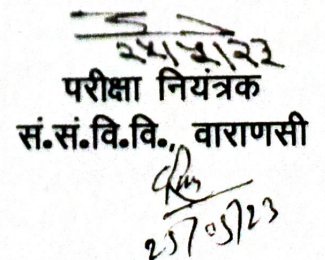 २५/५/२३
परीक्षा नियंत्रक
सं.सं.वि.वि., वाराणसी
25/05/23